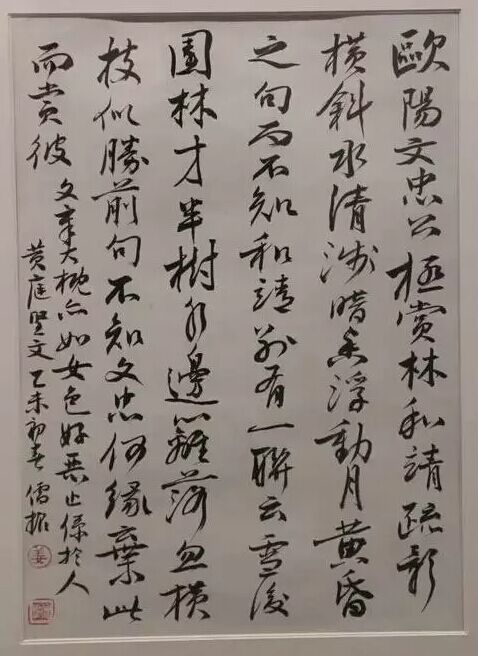 歐陽文忠公極賞林和靖疏影
橫斜水清淺暗香浮動月黃昏
之句而不知和靖別有一聯云雪後
園林才半樹水邊籬落忽橫
枝似勝前句不知文忠何緣棄此
而賞彼
文章大概亦如女色好惡止係於人
黃庭堅文乙未初春儒振
姜